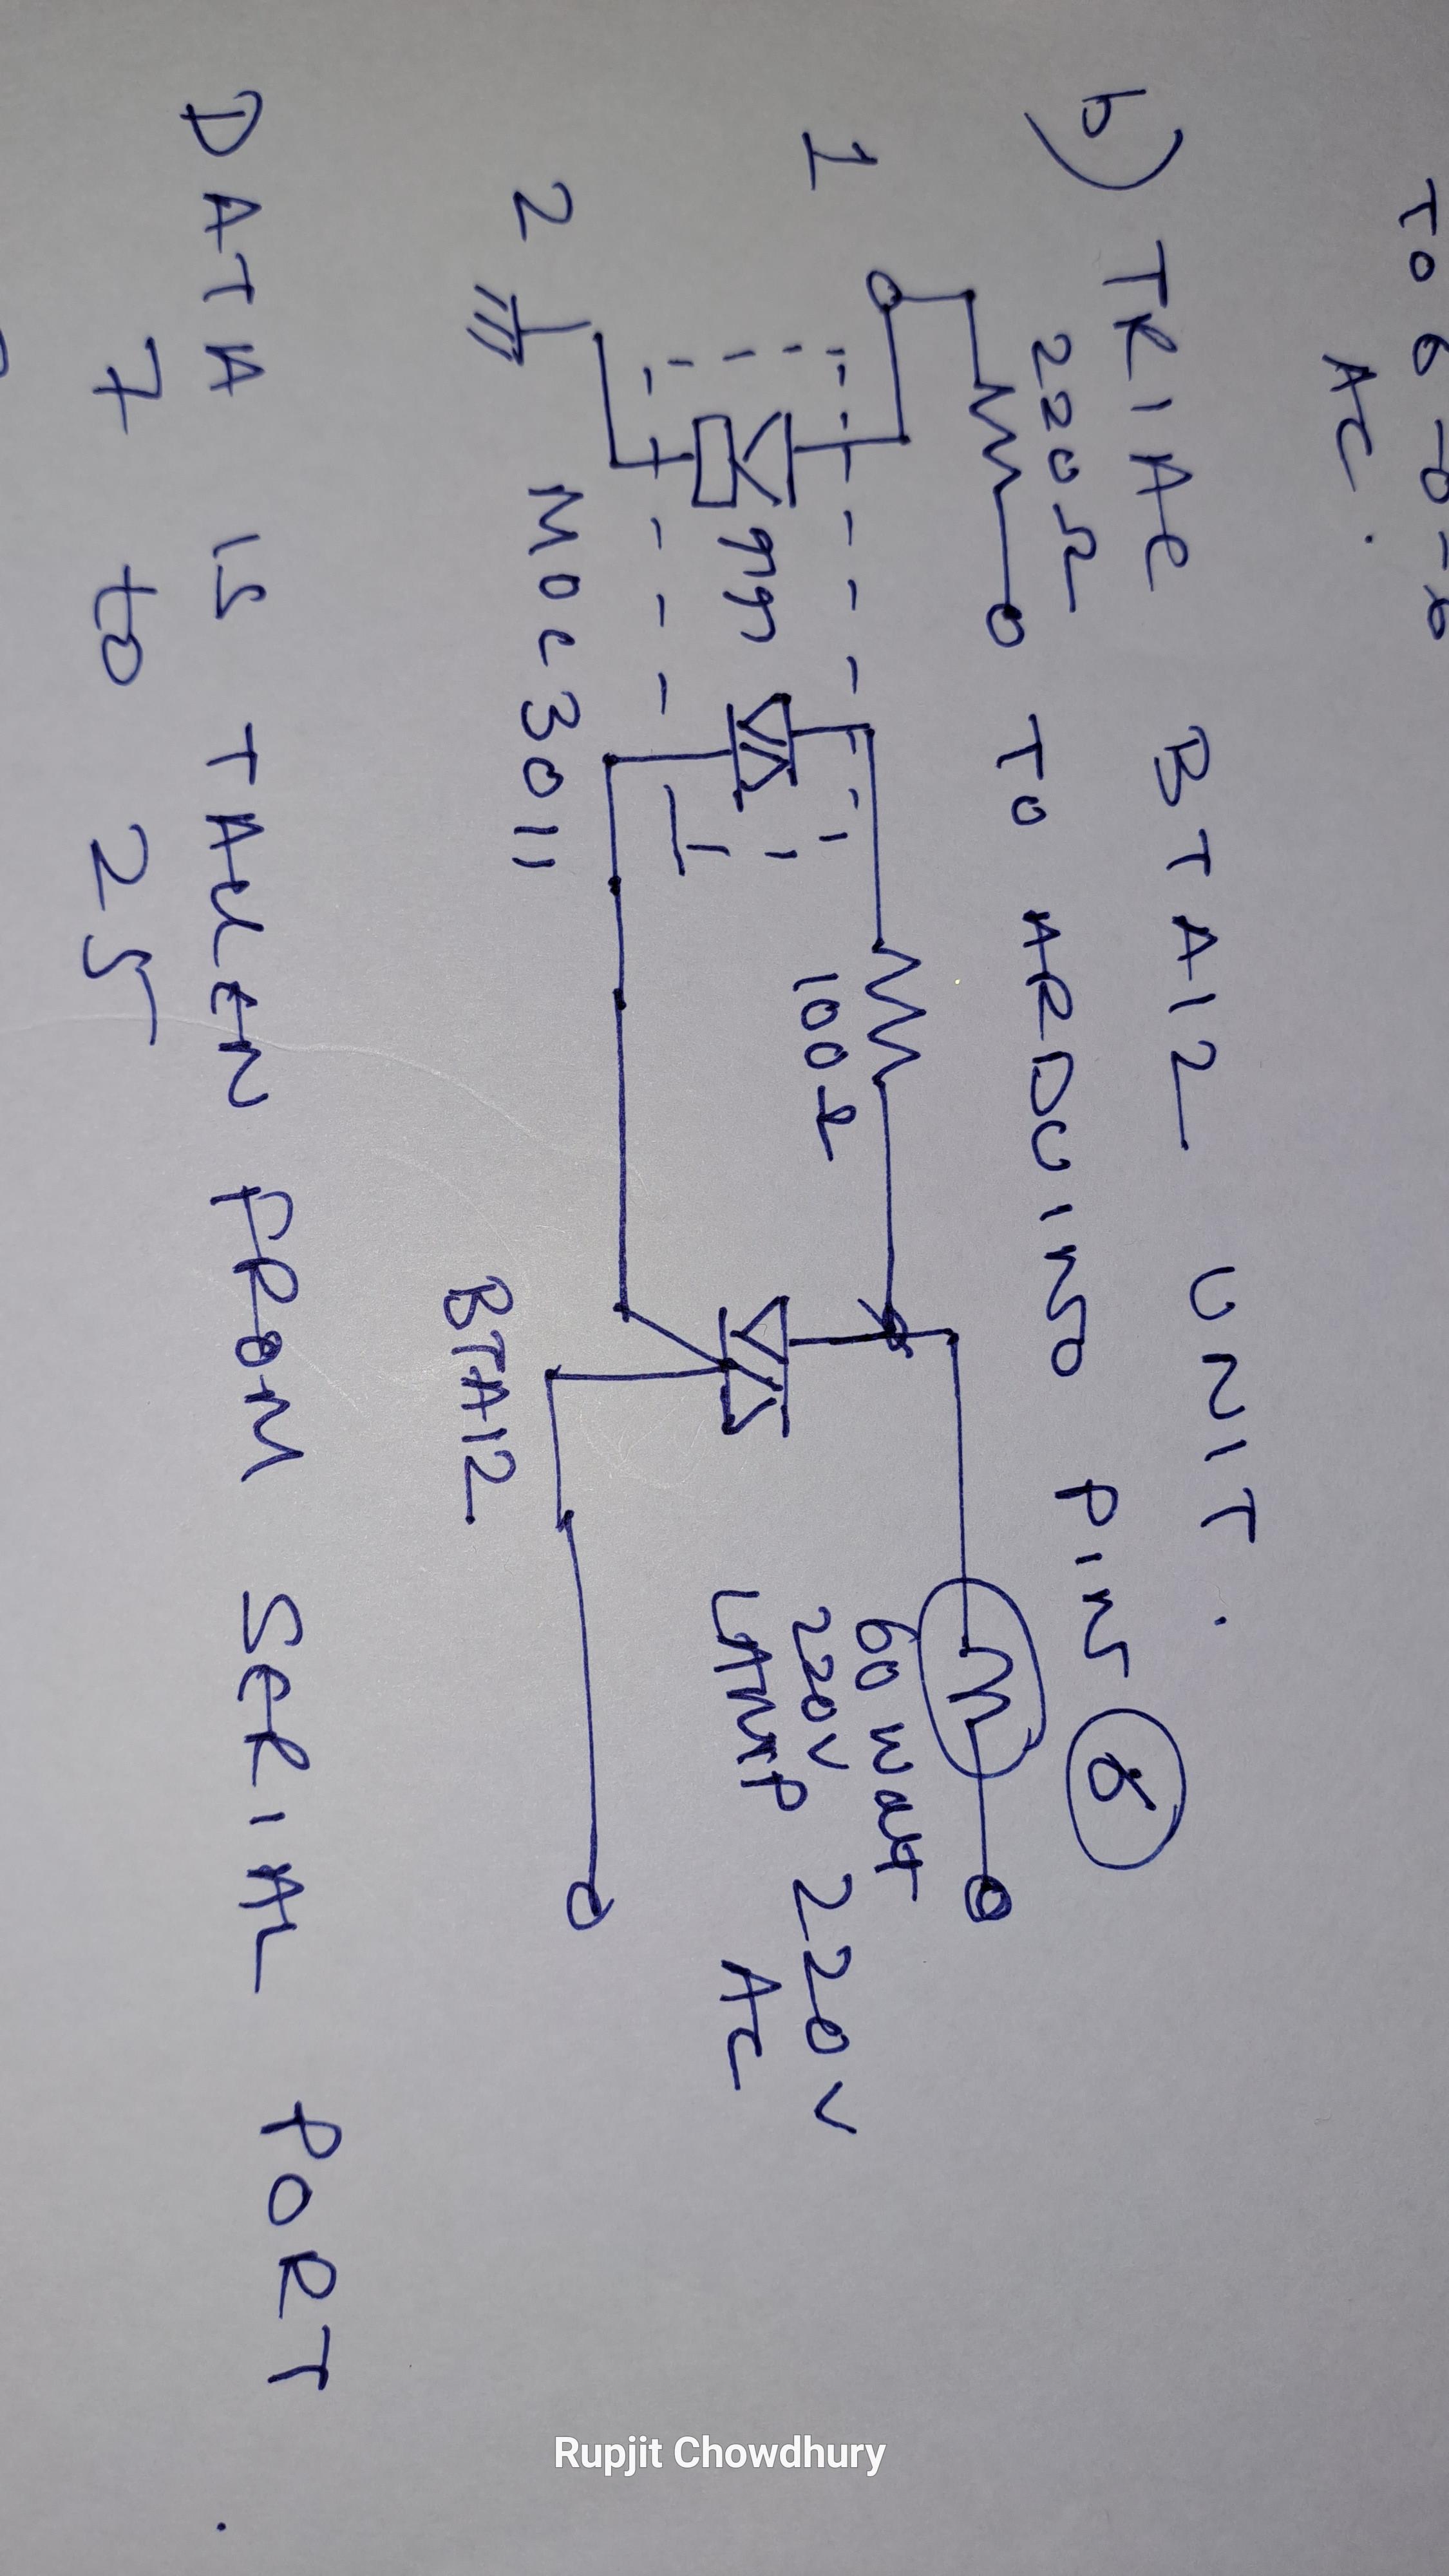 TO 6-0-6
AC.
b) TRIAC BTA12 UNIT.
220Ω TO ARDUINO PIN 8
1
100Ω
60 Watt
220V
LAMP
220V
AC
2
MOC3011
BTA12
DATA IS TAKEN FROM SERIAL PORT.
7 to 25
Rupjit Chowdhury